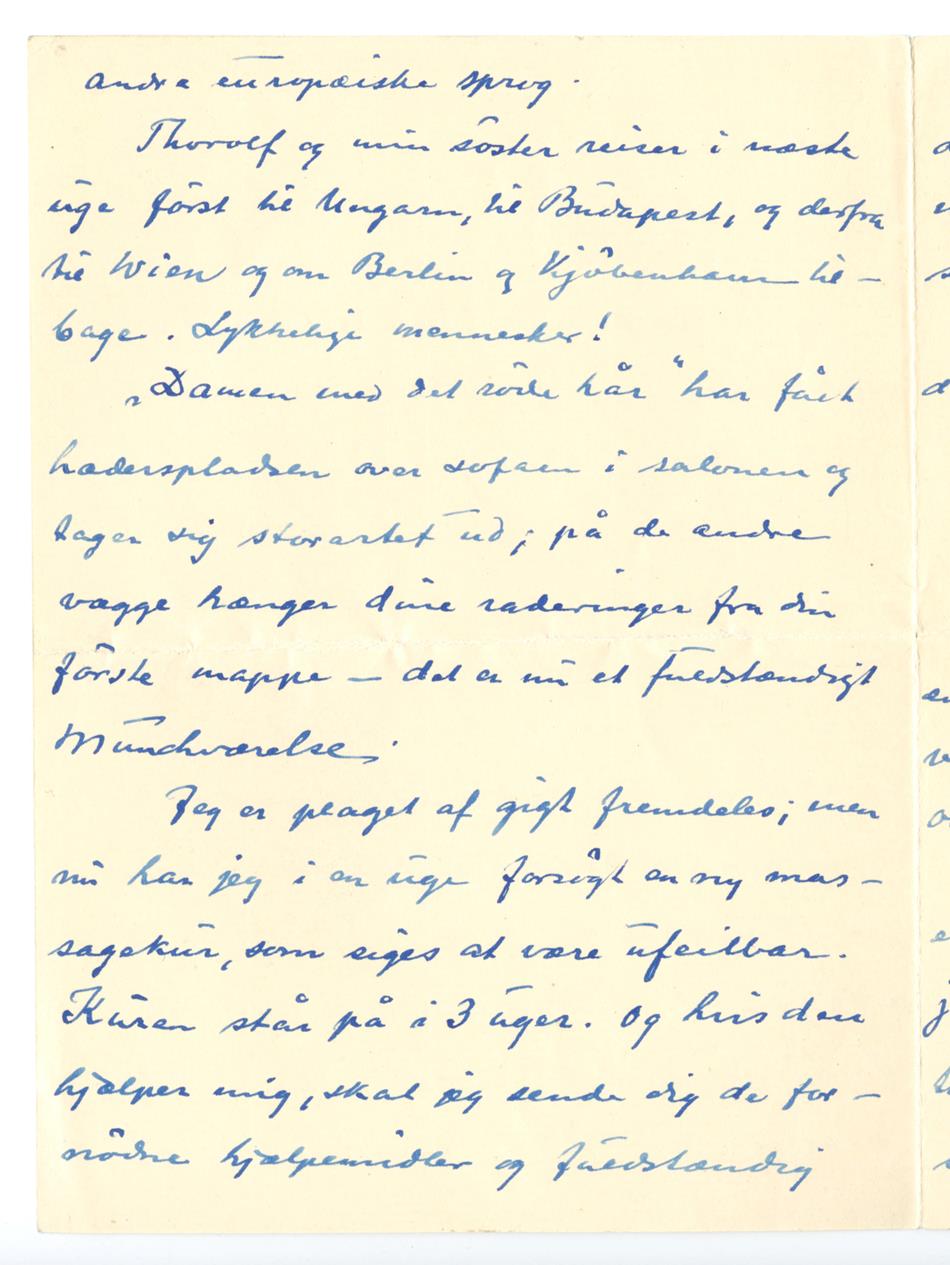 andre europæiske sprog.
Thorolf og min söster reiser i næste
uge först til Ungarn, til Budapest, og derfra
til Wien og om Berlin og Kjöbenhavn til-
bage. Lykkelige mennesker!
„Damen med det röde hår" har fået
hæderspladsen over sofaen i salonen og
tager sig storartet ud; på de andre
vægge hænger dine raderinger fra din
förste mappe — det er nu et fuldstændigt
Munchværelse.
Jeg er plaget af gigt fremdeles; men
nu har jeg i en uge forsögt en ny mas-
sagekur, som siges at være ufeilbar.
Kuren står på i 3 uger. Og hvis den
hjælper mig, skal jeg sende dig de for-
nödne hjælpemidler og fuldstændig